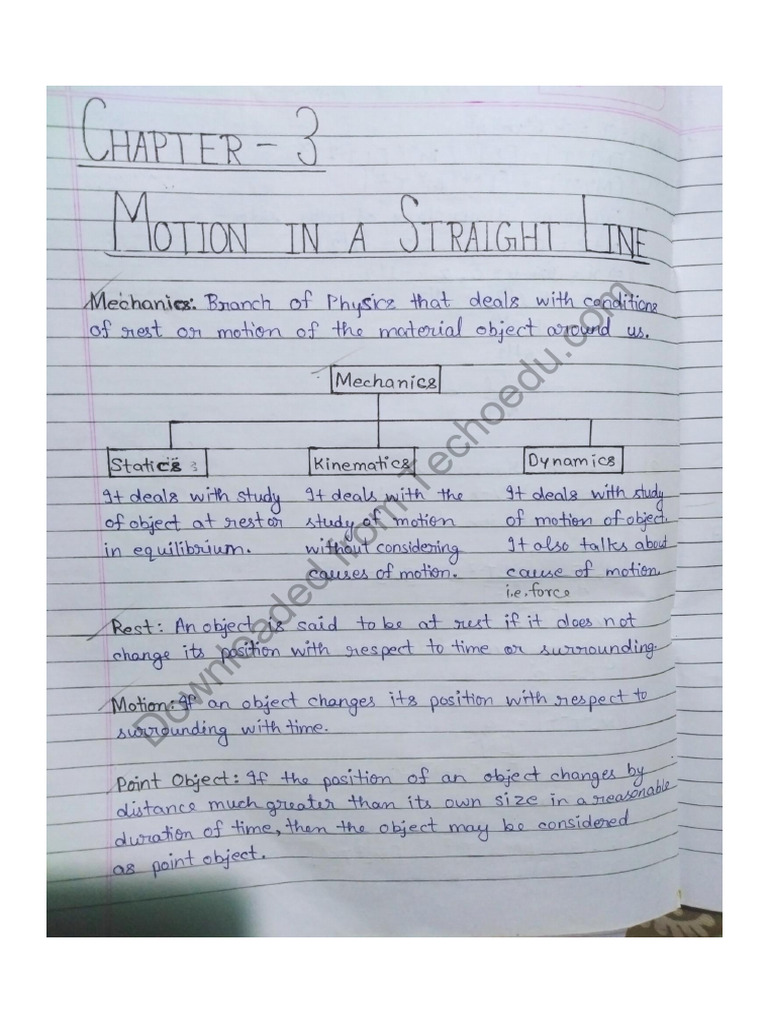 CHAPTER - 3
MOTION IN A STRAIGHT LINE
Mechanics: Branch of Physics that deals with conditions
of rest or motion of the material object around us.
Mechanics
Statics :
It deals with study
of object at rest or
in equilibrium.
Kinematics
It deals with the
study of motion
without considering
causes of motion.
Dynamics
It deals with study
of motion of object.
It also talks about
cause of motion
i.e. force
Rest: An object is said to be at rest if it does not
change its position with respect to time or surrounding.
Motion: If an object changes its position with respect to
surrounding with time.
Point Object: If the position of an object changes by
distance much greater than its own size in a reasonable
duration of time, then the object may be considered
as point object.
Downloaded from Techoedu.com